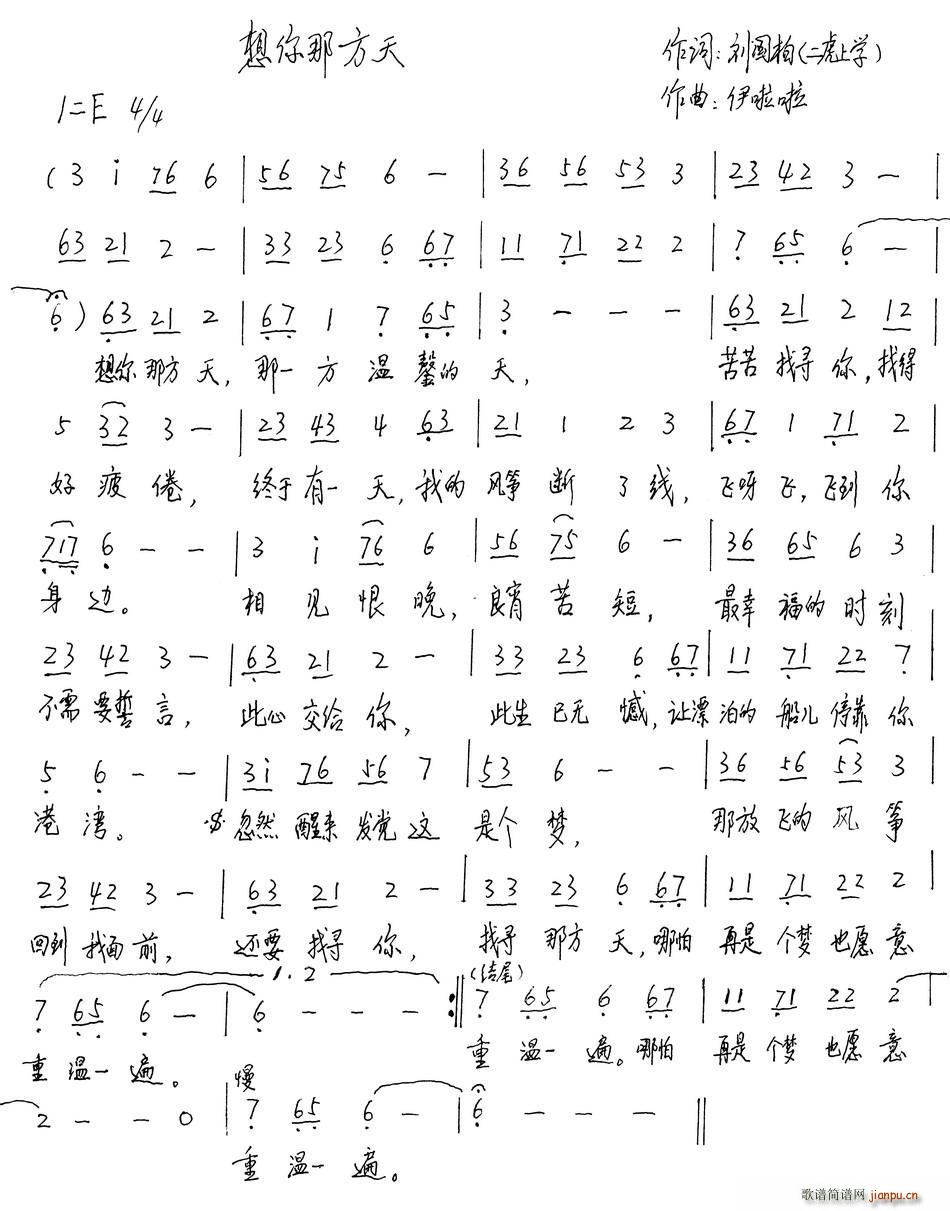 想你那方天
作词：刘国柏(二虎上学)
作曲：伊啦啦
1=E 4/4
(3 i 76 6 | 56 75 6 - | 36 56 53 3 | 23 42 3 - |
63 21 2 - | 33 23 6 67 | 11 71 22 2 | 7 65 6 - |
6) 63 21 2 | 67 1 7 65 | 3 - - - | 63 21 2 12 |
想你那方天，那一方温馨的天，苦苦找寻你，找得
5 32 3 - | 23 43 4 63 | 21 1 2 3 | 67 1 71 2 |
好疲倦，终于有一天，我的风筝断了线，飞呀飞，飞到你
717 6 - - | 3 i 76 6 | 56 75 6 - | 36 65 6 3 |
身边。相见恨晚，良宵苦短，最幸福的时刻
23 42 3 - | 63 21 2 - | 33 23 6 67 | 11 71 22 7 |
不需要誓言，此心交给你，此生已无憾，让漂泊的船儿停靠你
5 6 - - | 3i 76 56 7 | 53 6 - - | 36 56 53 3 |
港湾。忽然醒来发觉这是个梦，那放飞的风筝
23 42 3 - | 63 21 2 - | 33 23 6 67 | 11 71 22 2 |
回到我面前，还要找寻你，找寻那方天，哪怕再是个梦也愿意
1.2 (结尾)
7 65 6 - | 6 - - - :‖ 7 65 6 67 | 11 71 22 2 |
重温一遍。重温一遍。哪怕再是个梦也愿意
慢
2 - - 0 | 7 65 6 - | 6 - - - ‖
重温一遍。
歌谱简谱网 jianpu.cn